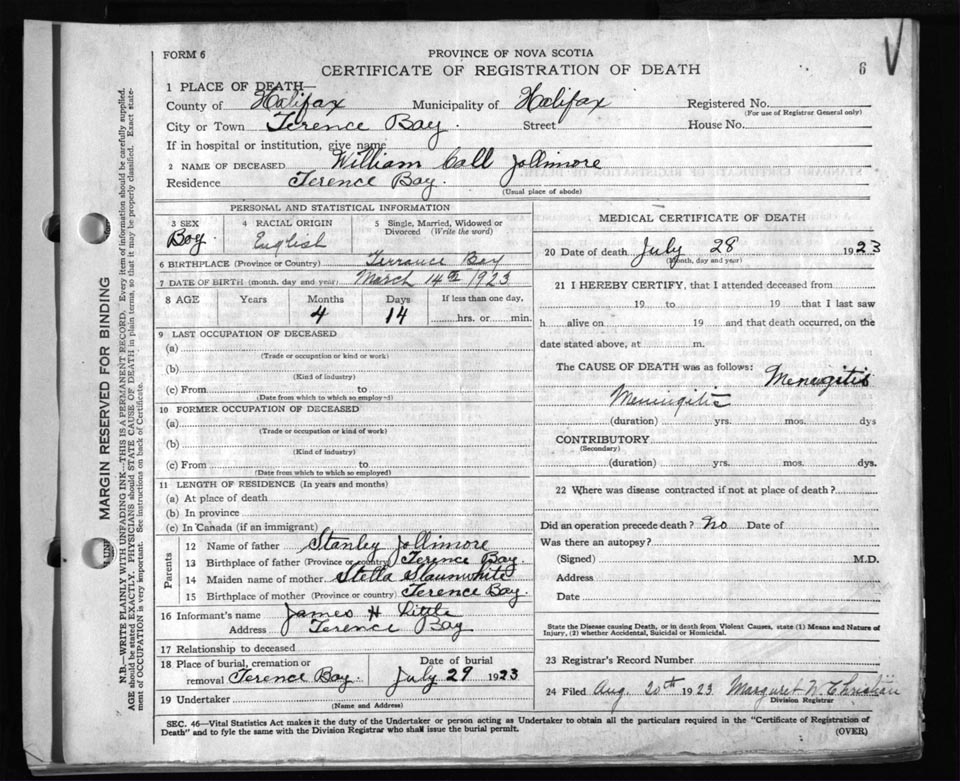 FORM 6
PROVINCE OF NOVA SCOTIA
CERTIFICATE OF REGISTRATION OF DEATH
6
1 PLACE OF DEATH—
County of Halifax Municipality of Halifax Registered No.
(For use of Registrar General only)
City or Town Terence Bay. Street House No.
If in hospital or institution, give name
2 NAME OF DECEASED William Coll Jollimore
Residence Terence Bay.
(Usual place of abode)
PERSONAL AND STATISTICAL INFORMATION
3 SEX Boy
4 RACIAL ORIGIN English
5 Single, Married, Widowed or Divorced (Write the word)
6 BIRTHPLACE (Province or Country) Terrance Bay
7 DATE OF BIRTH (month, day and year) March 14th 1923
8 AGE Years Months 4 Days 14 If less than one day,
hrs. or min.
9 LAST OCCUPATION OF DECEASED
(a)
(Trade or occupation or kind or work)
(b)
(Kind of industry)
(c) From to
(Date from which to which is employed)
10 FORMER OCCUPATION OF DECEASED
(a)
(Trade or occupation or kind of work)
(b)
(Kind of industry)
(c) From to
(Date from which to which so employed)
11 LENGTH OF RESIDENCE (In years and months)
(a) At place of death
(b) In province
(c) In Canada (if an immigrant)
Parents
12 Name of father Stanley Jollimore
13 Birthplace of father (Province or country) Terence Bay.
14 Maiden name of mother Stella Slaunwhite
15 Birthplace of mother (Province or country) Terence Bay.
16 Informant's name James H Little
Address Terence Bay
17 Relationship to deceased
18 Place of burial, cremation or removal Terence Bay. Date of burial July 29 1923
19 Undertaker
(Name and Address)
MEDICAL CERTIFICATE OF DEATH
20 Date of death July 28 1923
(Month, day and year)
21 I HEREBY CERTIFY, that I attended deceased from
19 to 19 that I last saw
h alive on 19 and that death occurred, on the
date stated above, at m.
The CAUSE OF DEATH was as follows: Menugitis
Meningitis
(duration) yrs. mos. dys
CONTRIBUTORY
(Secondary)
(duration) yrs. mos. dys.
22 Where was disease contracted if not at place of death?
Did an operation precede death? No Date of
Was there an autopsy?
(Signed) M.D.
Address
Date
State the Disease causing Death, or in death from Violent Causes, state (1) Means and Nature of
Injury, (2) whether Accidental, Suicidal or Homicidal.
23 Registrar's Record Number
24 Filed Aug. 20th 1923 Margaret N. Christian
Division Registrar
SEC. 46—Vital Statistics Act makes it the duty of the Undertaker or person acting as Undertaker to obtain all the particulars required in the "Certificate of Registration of
Death" and to fyle the same with the Division Registrar who shall issue the burial permit.
(OVER)
MARGIN RESERVED FOR BINDING
N.B.—WRITE PLAINLY WITH UNFADING INK—THIS IS A PERMANENT RECORD. Every item of information should be carefully supplied.
AGE should be stated EXACTLY. PHYSICIANS should STATE CAUSE OF DEATH in plain terms, so that it may be properly classified. Exact state-
ment of OCCUPATION is very important. See instructions on back of Certificate.